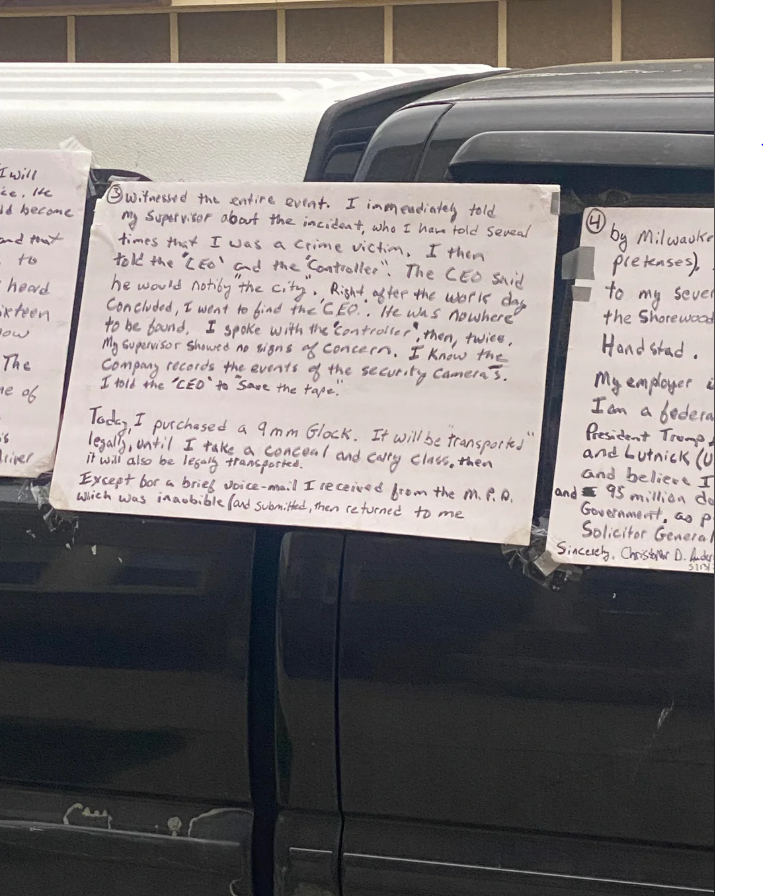 I will
ice. He
ld become
and that
to
heard
ixteen
ow
The
me of
river
③ witnessed the entire event. I immediately told
my Supervisor about the incident, who I have told several
times that I was a crime victim. I then
told the "CEO" and the "Controller". The CEO said
he would notify the city". Right, after the work day
Concluded, I went to find the "CEO". He was nowhere
to be found. I spoke with the "controller", then, twice.
My supervisor showed no signs of concern. I know the
Company records the events of the security camera's.
I told the "CEO" to "Save the tape."
Today, I purchased a 9mm Glock. It will be "transported"
legally, until I take a conceal and carry class, then
it will also be legally transported.
Except for a brief voice-mail I received from the M.P.D.
which was inaobible (and submitted, then returned to me
④ by Milwauke
pretenses),
to my sever
the Shorewood
Handstad.
My employer i
I am a federa
President Trump,
and Lutnick (U
and believe I
and 95 million do
Government, as p
Solicitor General
Sincerely, Christopher D.